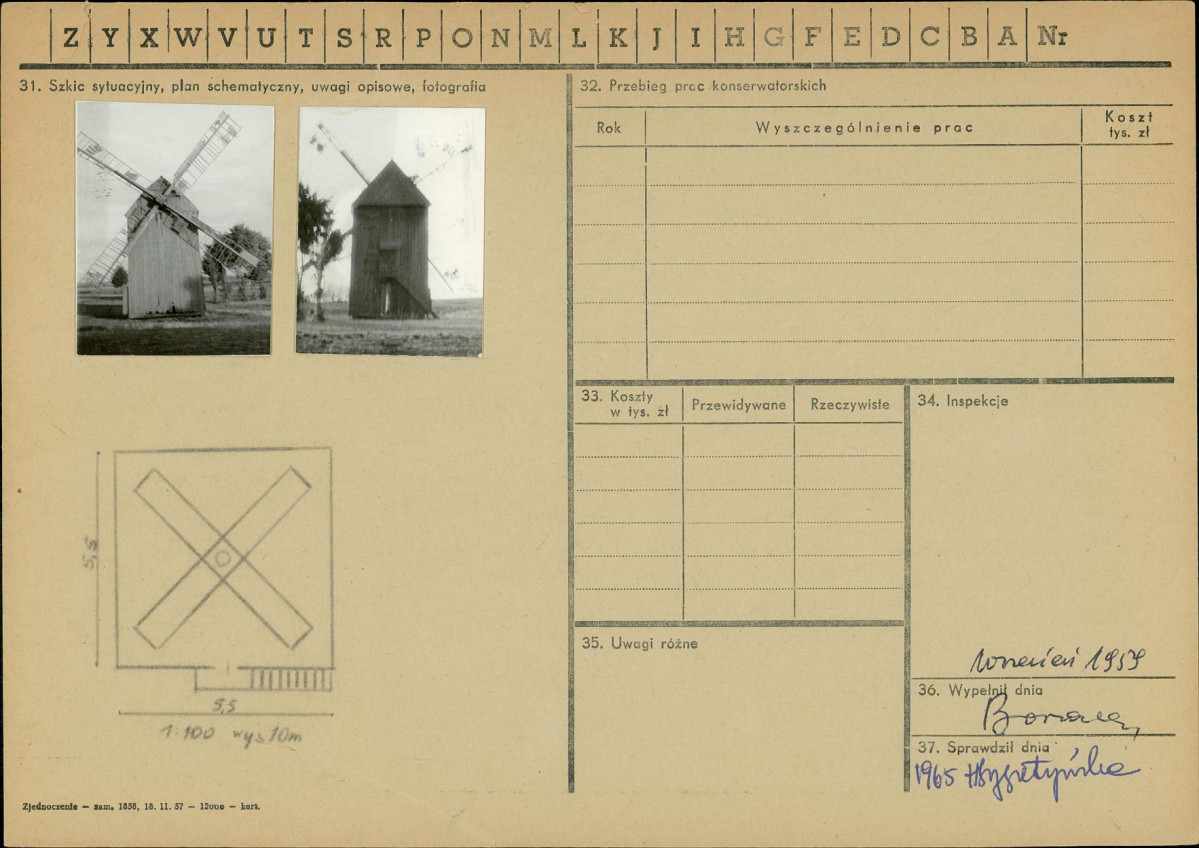 Z Y X W V U T S R P O N M L K J I H G F E D C B A Nr
31. Szkic sytuacyjny, plan schematyczny, uwagi opisowe, fotografia
32. Przebieg prac konserwatorskich
Rok
Wyszczególnienie prac
Koszt
tys. zł
33. Koszty
w tys. zł
Przewidywane
Rzeczywiste
34. Inspekcje
5,5
5,5
1:100 wys 10m
35. Uwagi różne
wrzesień 1959
36. Wypełnił dnia
37. Sprawdził dnia
1965
Zjednoczenie — zam. 1858, 18. 11. 57 — 12000 — kart.